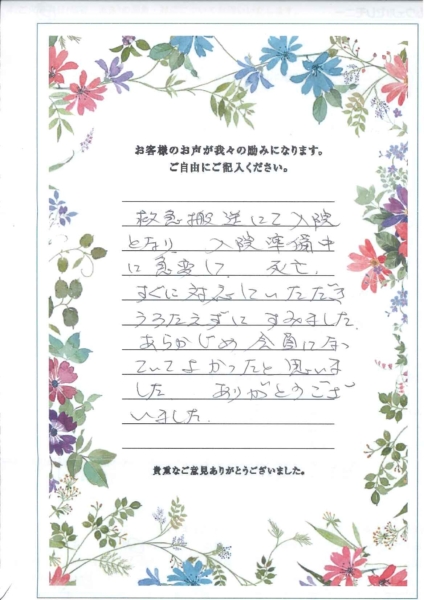 お客様のお声が我々の励みになります。
ご自由にご記入ください。
救急搬送にて入院
となり 入院準備中
に急変して 死亡、
すぐに対応していただき
うろたえずにすみました。
あらかじめ会員になっ
ていてよかったと思いま
した。 ありがとうござ
いました。
貴重なご意見ありがとうございました。